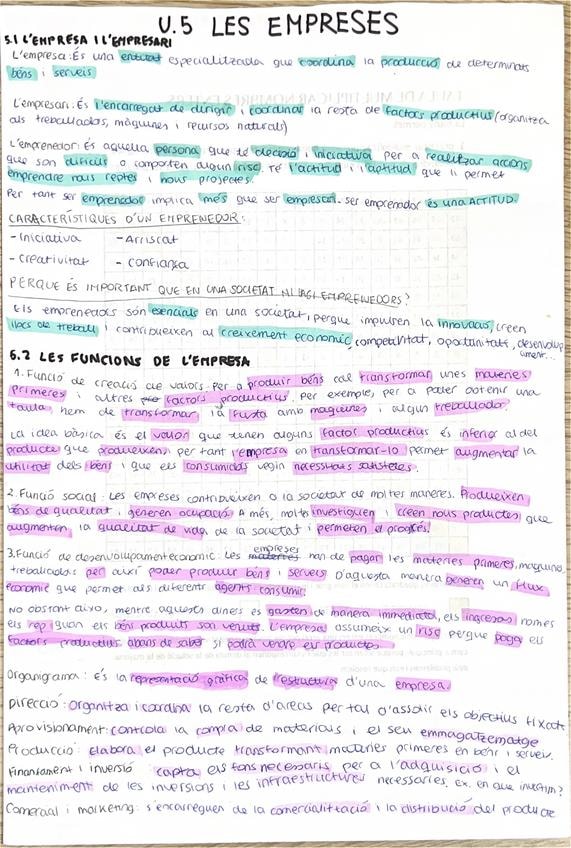 U.5 LES EMPRESES
5.1 L'EMPRESA I L'EMPRESARI
L'empresa: És una entitat especialitzada que coordina la producció de determinats
béns i serveis
L'empresari: És l'encarregat de dirigir i coordinar la resta de factors productius (organitza
als treballadors, màquines i recursos naturals)
L'emprenedor: És aquella persona que té decisió i iniciativa per a realitzar accions
que són difícils o comporten algun risc. Té l'actitud i l'aptitud que li permet
emprendre nous reptes i nous projectes.
Per tant ser emprenedor implica més que ser empresari. Ser emprenedor és una ACTITUD.
CARACTERÍSTIQUES D'UN EMPRENEDOR:
- Iniciativa - Arriscat
- Creativitat - Confiança
PERQUE ÉS IMPORTANT QUE EN UNA SOCIETAT NI HAGI EMPRENEDORS?
Els emprenedors són esencials en una societat, perque impulsen la innovació, creen
llocs de treball i contribueixen al creixement econòmic, competitivitat, oportunitats, desenvolup
ament...
5.2 LES FUNCIONS DE L'EMPRESA
1. Funció de creació de valors: Per a produir béns cal transformar unes matèries
primeres i altres factors productius. Per exemple, per a poder obtenir una
taula, hem de transformar la fusta amb maquines i algun treballador.
La idea bàsica és el valor que tenen alguns factor productius és inferior al del
producte que produeixen, per tant l'empresa en transformar-lo permet augmentar la
utilitat dels béns i que els consumidos vegin necessitats satisfetes.
2. Funció social: Les empreses contribueixen a la societat de moltes maneres. Produeixen
béns de qualitat i generen ocupació. A més, molts investiguen i creen nous productes que
augmenten la qualitat de vida de la societat i permeten el progrés.
3. Funció de desenvolupament econòmic: Les empreses han de pagar les matèries primeres, maquines,
treballadors per així poder produir béns i serveis. D'aquesta manera generen un flux
econòmic que permet als diferents agents consumir.
No obstant això, mentre aquests diners es gasten de manera immediata, els ingressos només
els rep quan els béns produïts són venuts. L'empresa assumeix un risc perque paga els
factors productius abans de saber si podrà vendre els productes
Organigrama: és la representació gràfica de l'estructura d'una empresa.
Direcció: organitza i coordina la resta d'arees per tal d'assolir els objectius fixats
Aprovisionament: controla la compra de materials i el seu emmagatzematge
Producció: Elabora el producte transformant matèries primeres en béns i serveis.
Finançament i inversió: capta els fons necessaris per a l'adquisició i el
manteniment de les inversions i les infraestructures necessàries. Ex: en que invertim?
Comercial i màrketing: s'encarreguen de la comercialització i la distribució del producte